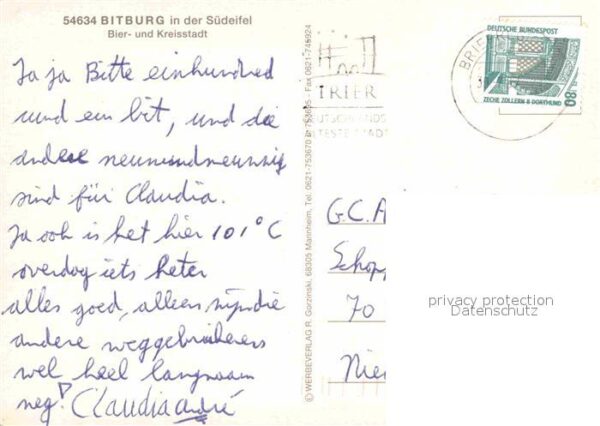 54634 BITBURG in der Südeifel
Bier- und Kreisstadt
Ja ja Bitte einhundred
und ein bit, und die
andere neunundneunzig
sind für Claudia.
Ja ooh is het hier 101°C
overdag iets heter
alles goed, alleen mijn die
andere weggebruikers
wel heel langzaam
neg! Claudia André
© WERBEVERLAG R. Gorzinski, 68305 Mannheim, Tel. 0621-753670 Fax 0621-745924
BRIE
TRIER
DEUTSCHLANDS
ÄLTESTE STADT
DEUTSCHE BUNDESPOST
80
ZECHE ZOLLERN II · DORTMUND
G.C.A
Schop
70
Nie
privacy protection
Datenschutz